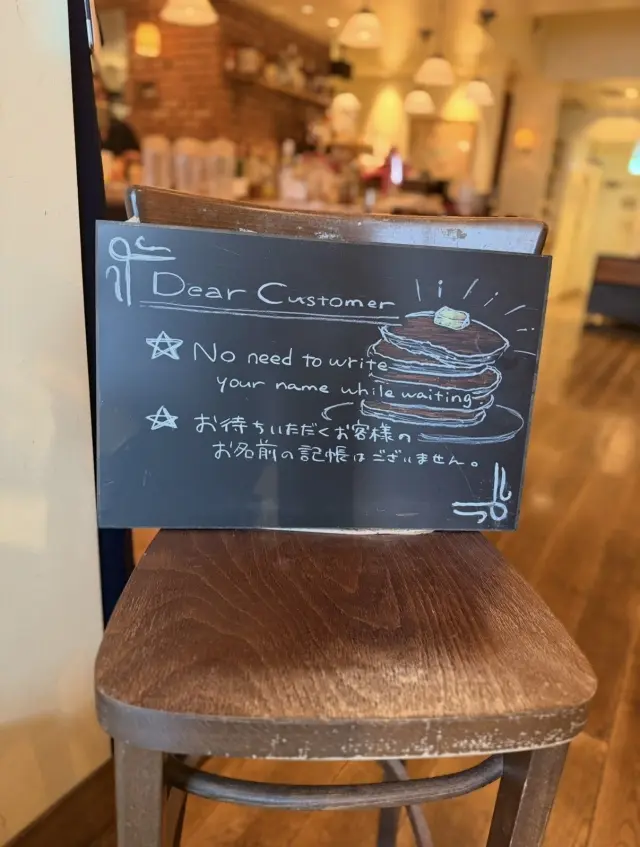 Dear Customer
☆ No need to write
your name while waiting.
☆ お待ちいただくお客様の
お名前の記帳はございません。